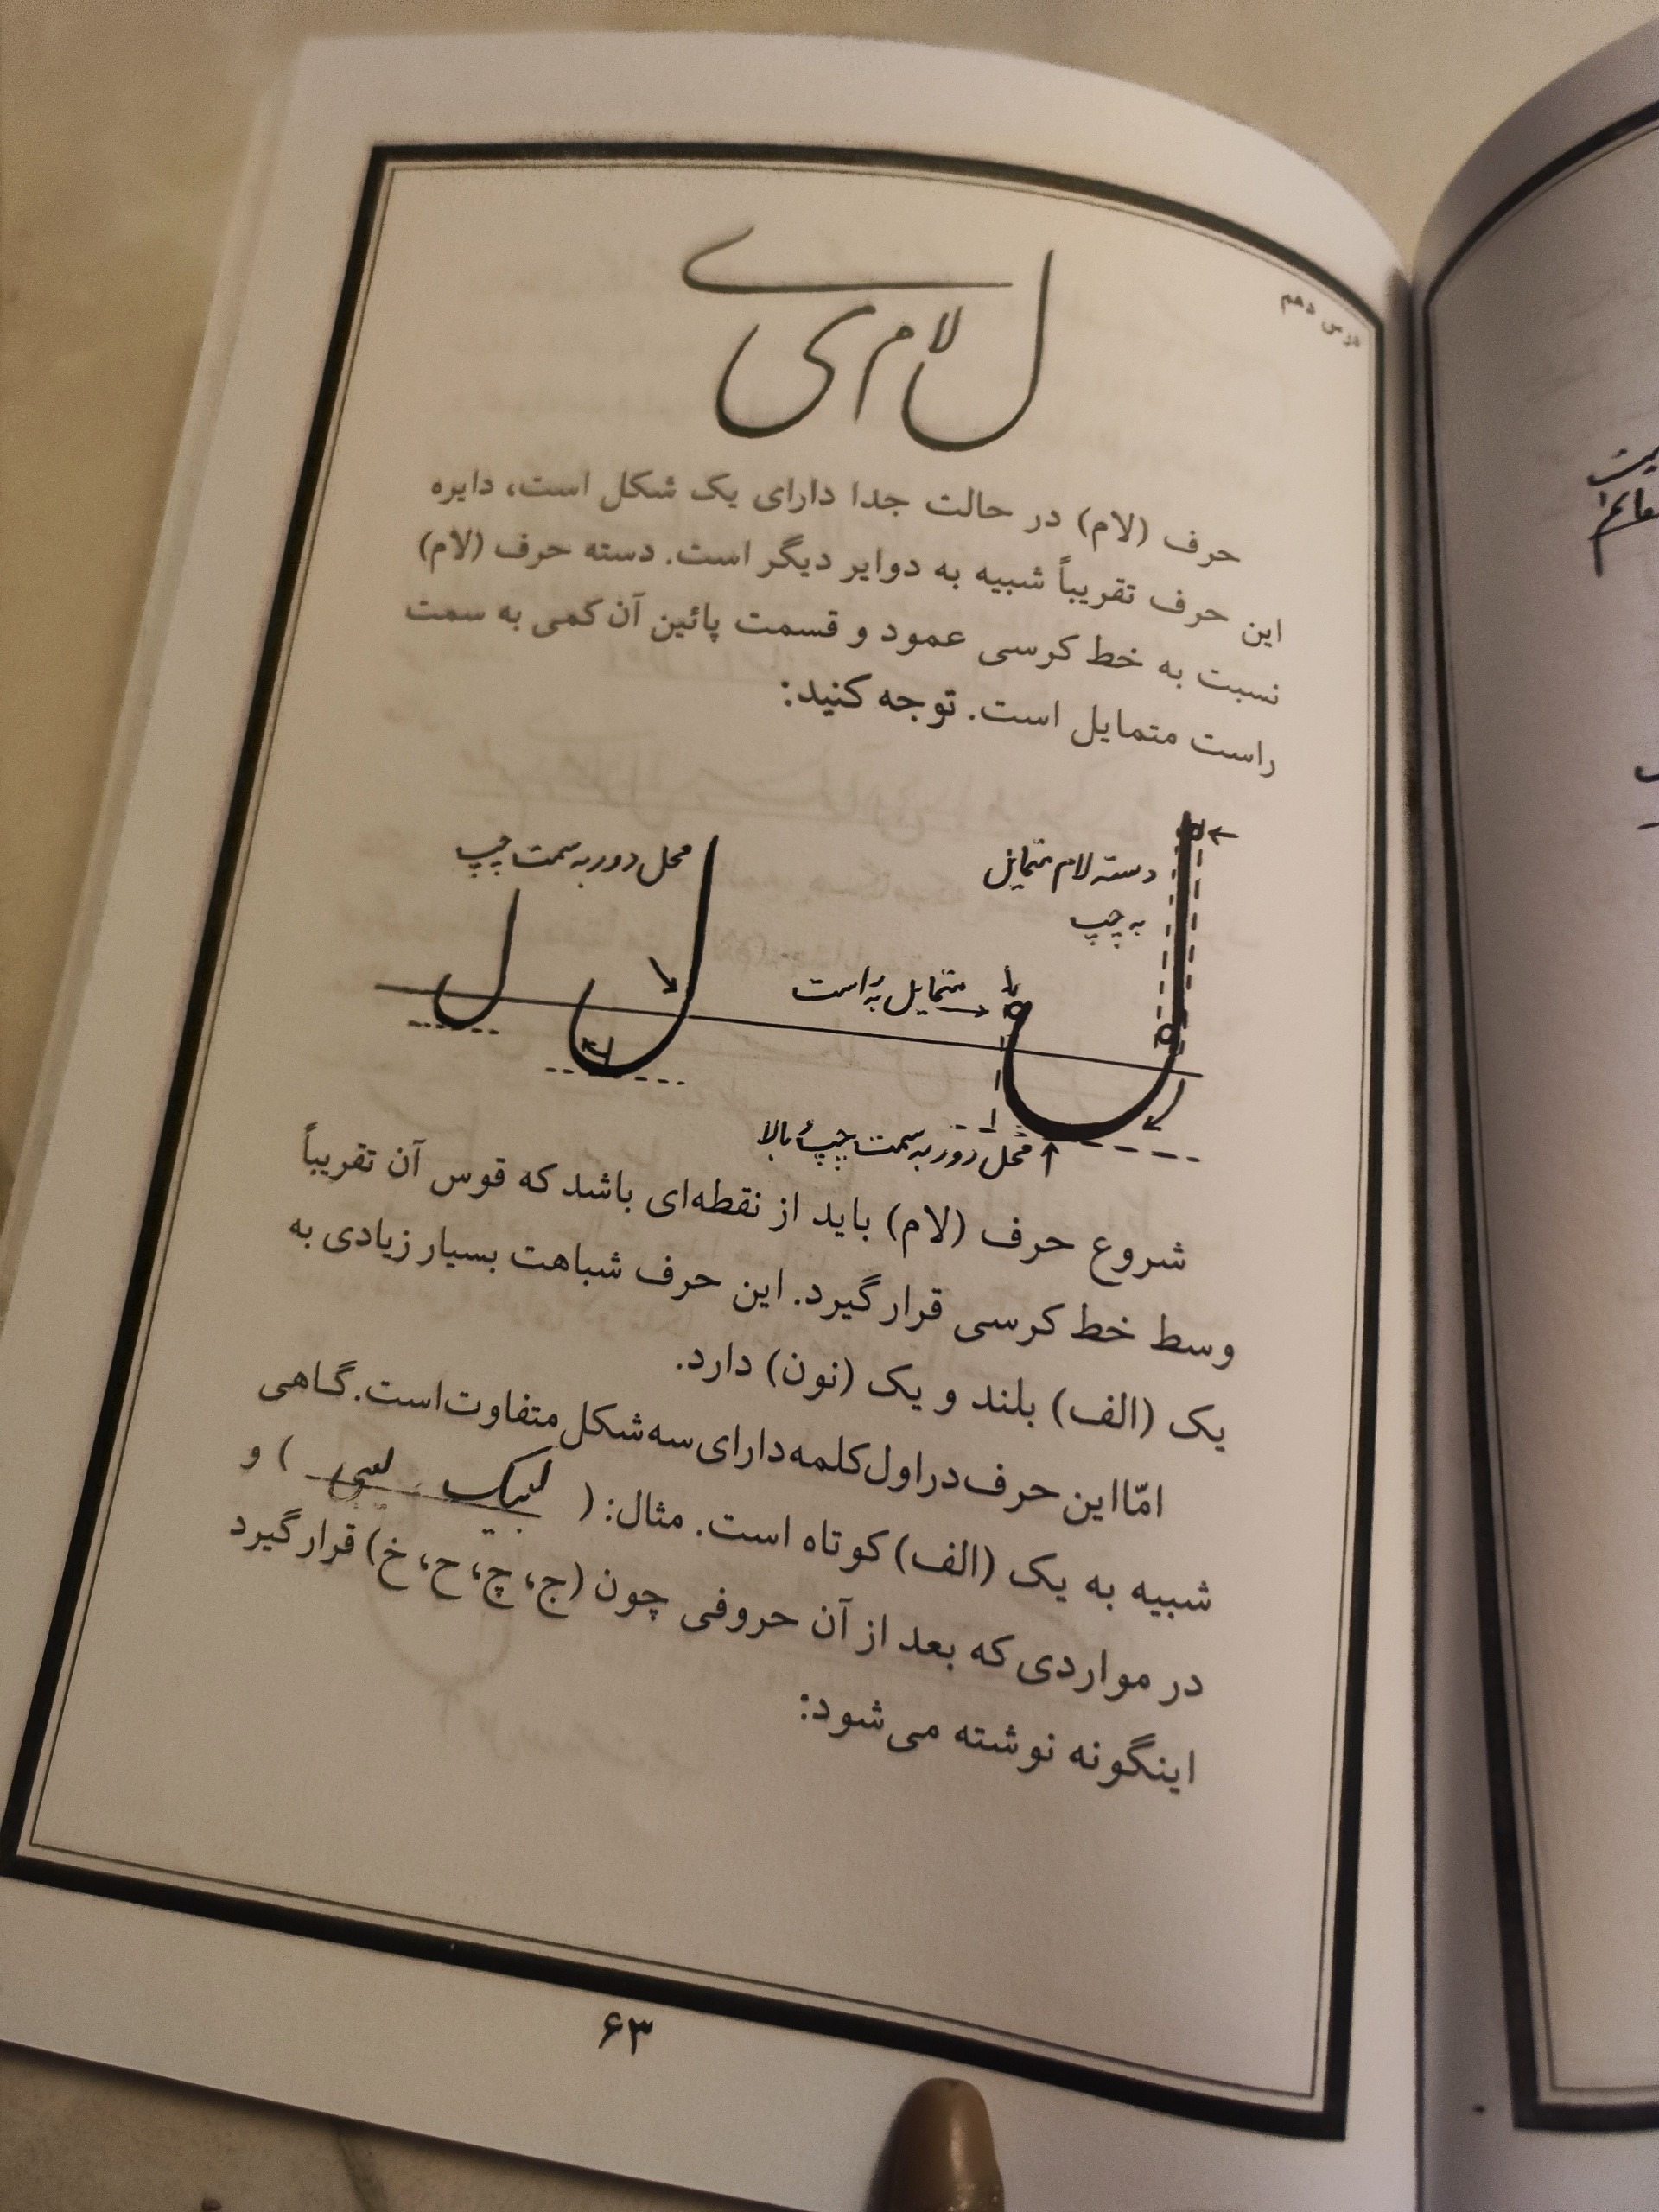 درس دهم
ل لام ی ے
حرف (لام) در حالت جدا دارای یک شکل است، دایره
این حرف تقریباً شبیه به دوایر دیگر است. دسته حرف (لام)
نسبت به خط کرسی عمود و قسمت پائین آن کمی به سمت
راست متمایل است. توجه کنید:
دسته لام متمایل
به چپ
متمایل به راست
محل دور به سمت چپ و بالا
ل
محل دور به سمت چپ
ل
ل
شروع حرف (لام) باید از نقطه‌ای باشد که قوس آن تقریباً
وسط خط کرسی قرار گیرد. این حرف شباهت بسیار زیادی به
یک (الف) بلند و یک (نون) دارد.
امّا این حرف در اول کلمه دارای سه شکل متفاوت است. گاهی
شبیه به یک (الف) کوتاه است. مثال: ( لبیک ) و
در مواردی که بعد از آن حروفی چون (ج، چ، ح، خ) قرار گیرد
اینگونه نوشته می‌شود:
۶۳